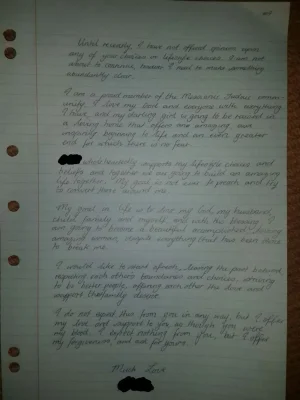 Until recently, I have not offered opinions upon
any of your choices or lifestyle choices. I am not
about to comment, however I need to make something
abundantly clear.
I am a proud member of the
I love my God and everyone with everything
I have, and my darling girl is going to be raised in
a loving home that offers one amazing and
beginning to life and an even greater
end for which there is no fear.
wholeheartedly supports my lifestyle choices and
beliefs and together we are going to build an amazing
life together. My goal is not aim to preach and try
to convert those around me.
My goal in life is to love my God, my husband,
child, family and myself and with this I
am going to become a beautiful
amazing woman, despite everything that has been done
to break me.
I would like to move forwards, leaving the past behind,
respecting each other's boundaries and choices, striving
to be better people, offering each other the love and
support that family deserve.
I do not expect this from you in any way, but I offer
my love and support to you as though you were
my blood. I expect nothing from you, but I offer
my forgiveness, and ask for yours.
Much Love